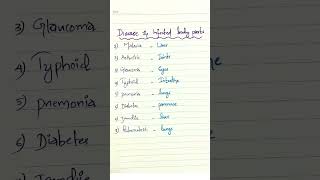 Disease & Infected body parts
1) Malaria - Liver
2) Arthritis - Joints
3) Glaucoma - Eyes
4) Typhoid - Intestine
5) pnemonia - lungs
6) Diabetes - pancreas
7) - liver
8) - lungs
3) Glaucoma
4) Typhoid
5) pnemonia
6) Diabetes